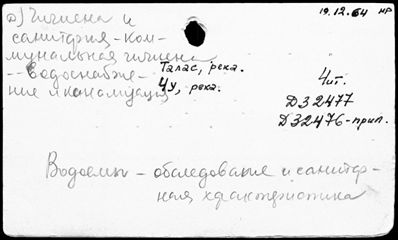 а) Гигиена и
санитария - ком-
мунальная гигиена
-- водоснабже-
ние и канализация
Талас, река.
Чу, река.
19.12.64 нр
Чит.
Д32477
Д32476-прил.
Водоемы - обследование и санитар-
ная характеристика